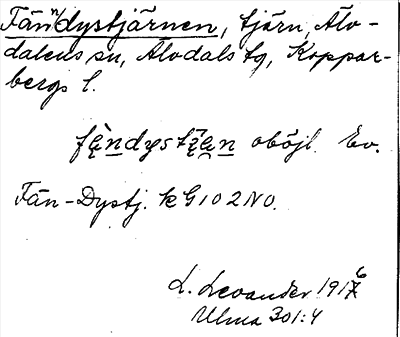 Fändystjärnen, tjärn, Älv-
dalens sn, Älvdals tg, Koppar-
bergs l.
fändystȷ̈än oböjl. Ev.
Fän-Dystj. k G102NO.
L. Levander 1916
Ulma 301:4